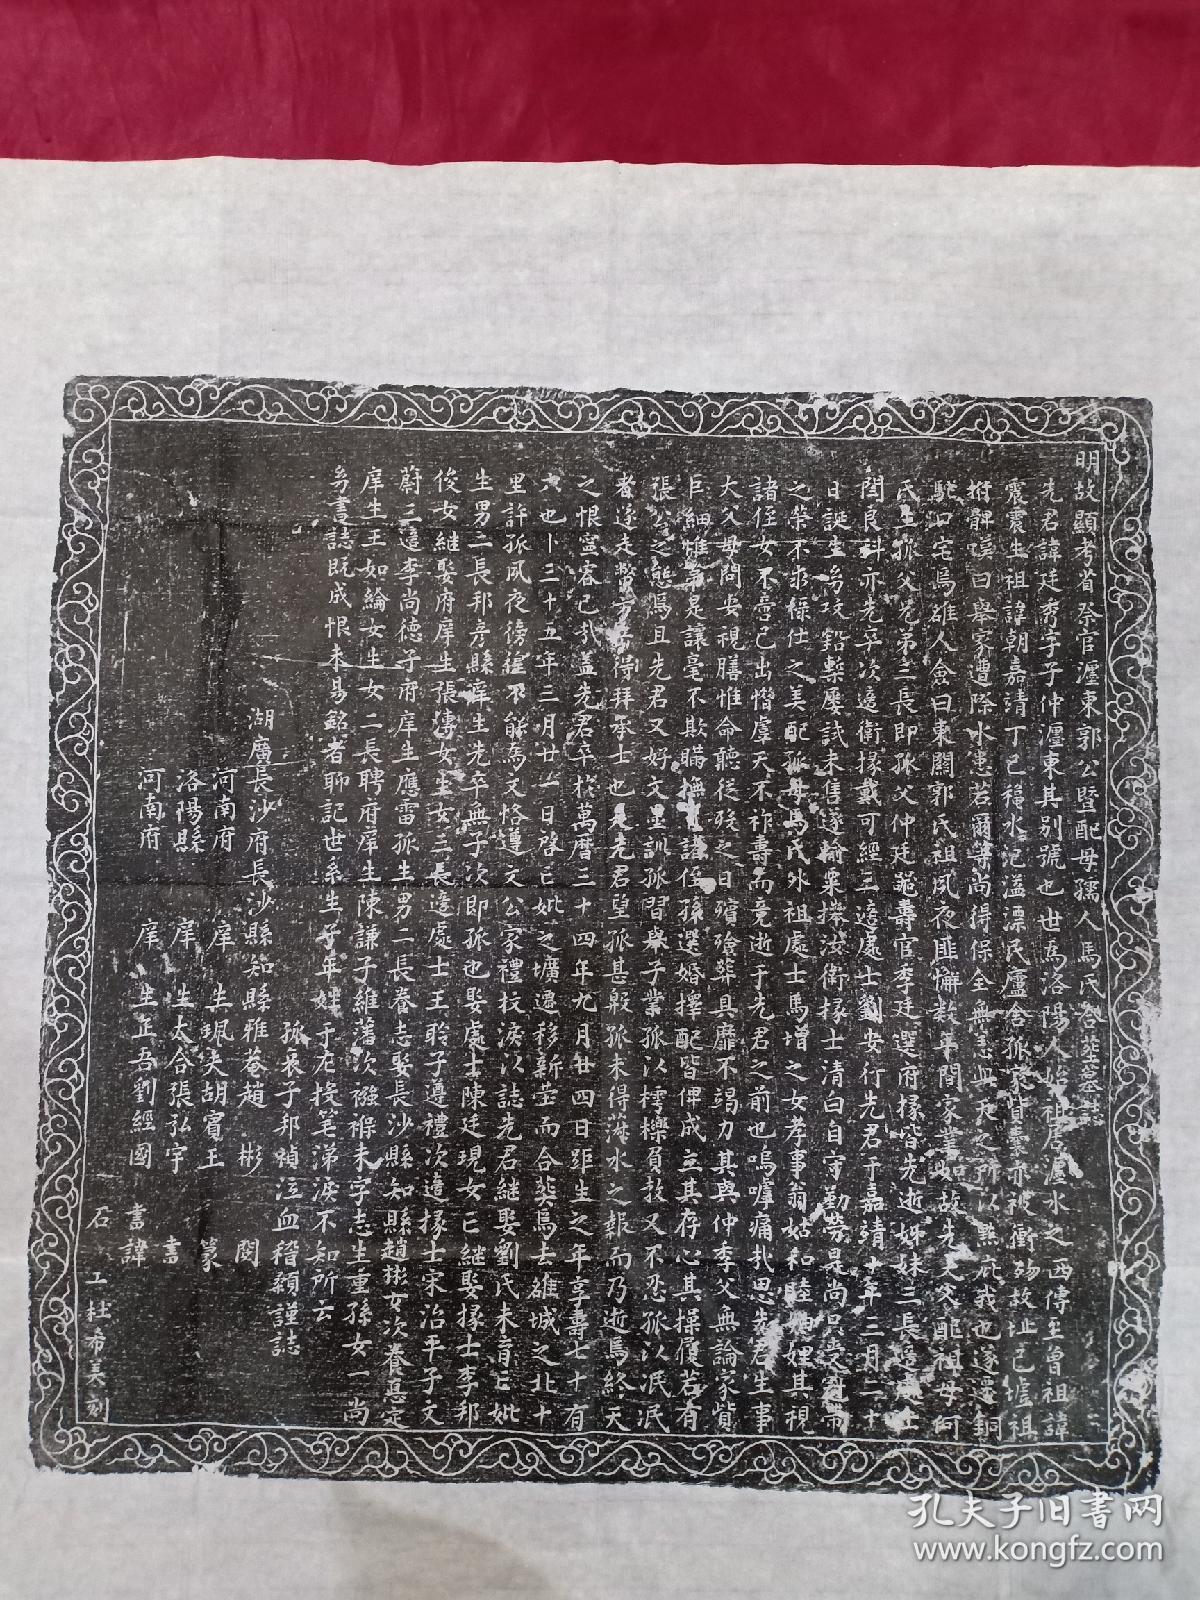 明故顯考省祭官瀍東郭公暨配母孺人馬氏合塟墓誌
先君諱廷秀字子仲瀍東其別號也世為洛陽人始祖居瀍水之西傳至曾祖諱
震震生祖諱朝嘉靖丁巳穐水氾溢漂民廬舍孤家貲橐亦被衝殁故址已墟祖
拊髀嘆曰舉家遭際水患若爾等尚得保全無恙與天之所以黙庇我也遂遷銅
駝口宅焉雒人僉曰東關郭氏祖夙夜匪懈数年間家業如故先大父配祖母何
氏生孤父兄弟三長即孤父仲廷 壽官季廷選府掾皆先逝姊妹三長適處士
閆良科亦先卒次適衛掾戴可經三適處士劉安行先君于嘉靖十年三月二十
日誕生為玟鉛槧屢試未售遂輸粟捧汝衛掾士清白自守勤勞是尚 帶
之榮不求祿仕之美配孤母馬氏外祖處士馬增之女孝事翁姑和睦妯娌其視
諸侄女不啻己出憯虖天不祚壽而竟逝于先君之前也嗚嘑痛哉思先君生事
大父母問安視膳惟命聽從殁之日殯殮葬具靡不竭力其與仲季父無論家貲
巨細惟弟是讓毫不欺瞞撫 諸侄孫選婚擇配皆俾成立其存心其操履若有
張公之態焉且先君又好文墨訓孤習舉子業孤以樗櫟負教又不忍孤以泯泯
者遂走幣 得拜承士也是先君望孤甚殷孤未得菽水之報而乃逝焉終天
之恨寧容已哉盖先君卒於萬曆三十四年九月廿四日距生之年享壽七十有
六也卜三十五年三月廿一日啓亡妣之壙遷移新塋而合葵焉去雒城之北十
里許孤夙夜徬徨不能為文恪遵文公家禮抆淚以誌先君継娶劉氏未育亡妣
生男二長邦彥縣庠生先卒無子次即孤也娶處士陳廷現女亡継娶掾士李邦
俊女継娶府庠生張溥女生女三長適處士王聆子遵禮次適掾士宋治平子文
蔚三適李尚德子府庠生應雷孤生男二長養志娶長沙縣知縣趙彬女次養慧定
庠生王如綸女生女二長聘府庠生陳謙子維藩次襁褓未字志生重孫女一尚
為書誌既成恨未易銘者聊記世系生子年娃于左投笔涕淚不知所云
孤哀子邦禎泣血稽顙謹誌
湖廣長沙府長沙縣知縣雅菴趙彬閱
河南府庠生珮夫胡寳玉篆
洛陽縣庠生太合張弘宇書
河南府庠生正吾劉經國書諱
石工杜希美刻
孔夫子旧书网
www.kongfz.com